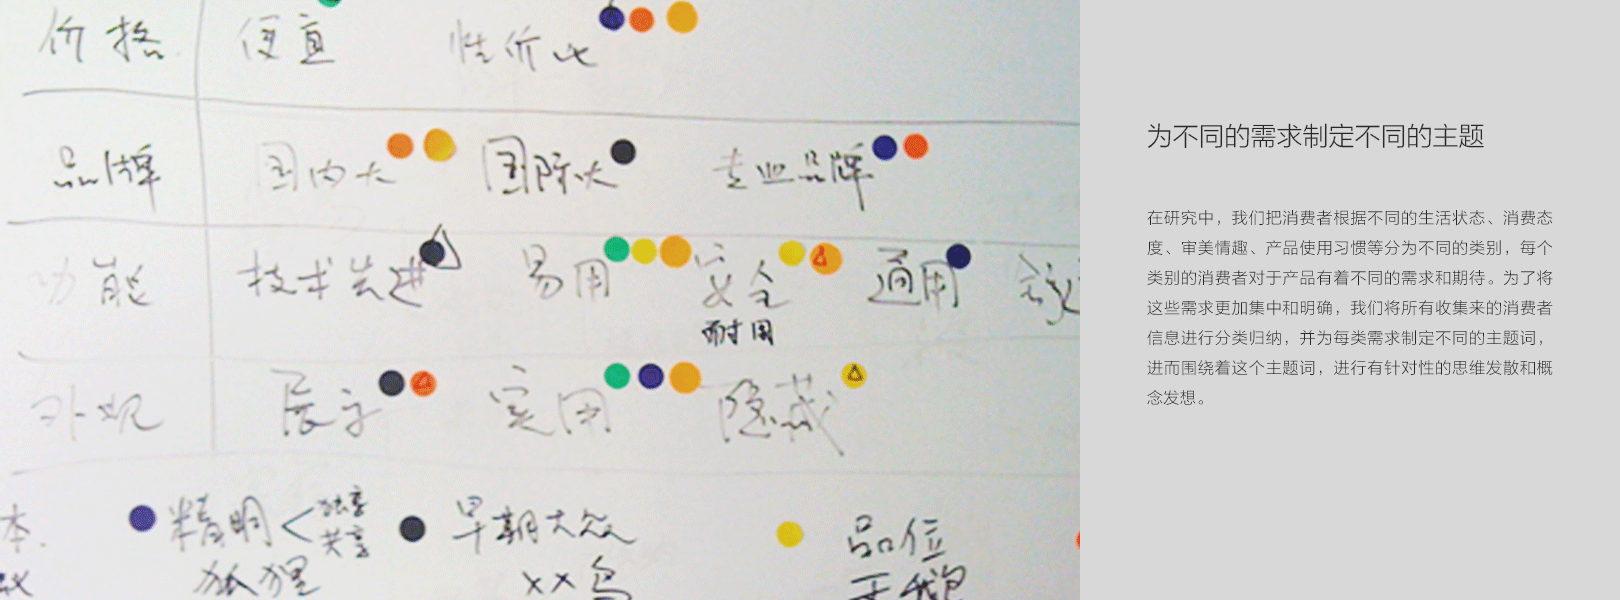 价格 便宜 性价比
品牌 国内大 国际大 专业品牌
功能 技术先进 易用 安全 通用
耐用
外观 展示 实用 隐藏
本. 精明 < 独享 早期大众 品位
共享
狐狸 ××鸟 天鹅
为不同的需求制定不同的主题
在研究中，我们把消费者根据不同的生活状态、消费态
度、审美情趣、产品使用习惯等分为不同的类别，每个
类别的消费者对于产品有着不同的需求和期待。为了将
这些需求更加集中和明确，我们将所有收集来的消费者
信息进行分类归纳，并为每类需求制定不同的主题词，
进而围绕着这个主题词，进行有针对性的思维发散和概
念发想。